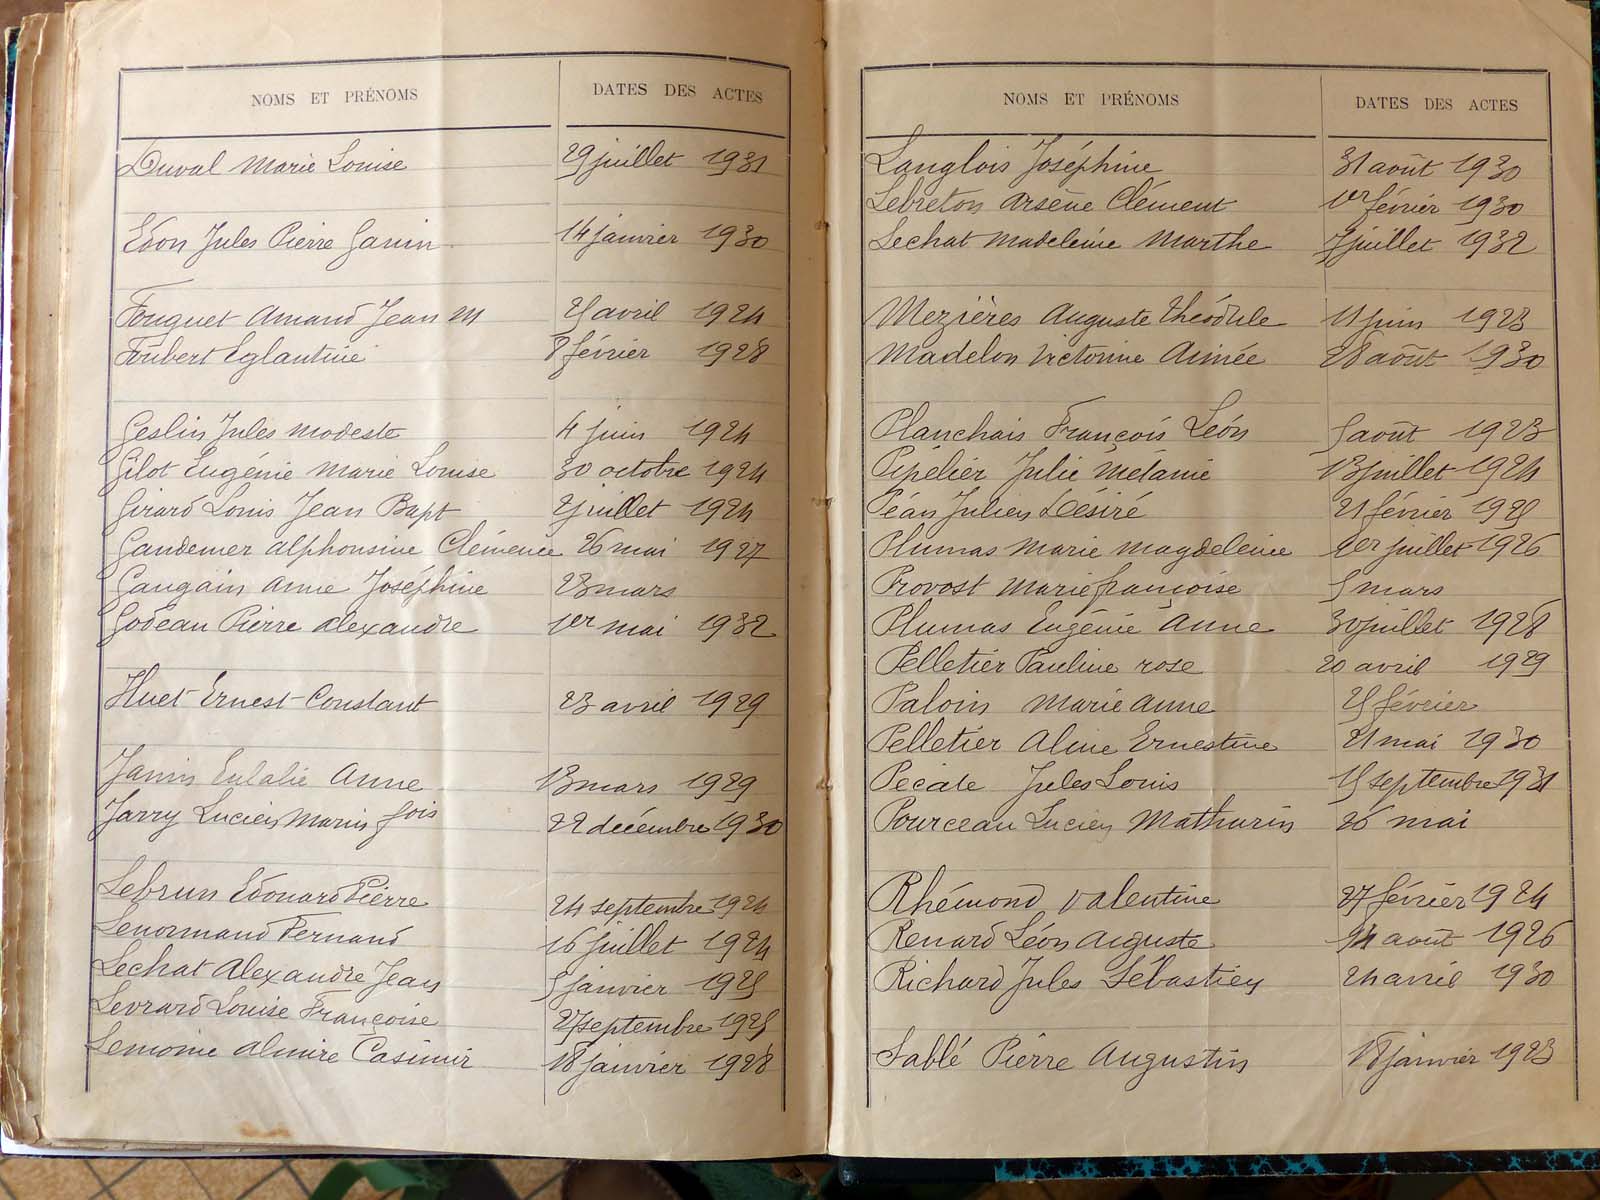 NOMS ET PRÉNOMS DATES DES ACTES
Duval Marie Louise 29 juillet 1931
Edon Jules Pierre 14 janvier 1930
Fouquet Amand Jean M 21 avril 1924
Foubert Eglantine 8 février 1928
Geslin Jules Modeste 4 juin 1924
Gilot Eugénie Marie Louise 30 octobre 1924
Girard Louis Jean Bapt 2 juillet 1924
Gandemer Alphonsine Clémence 26 mai 1927
Gaugain Anne Joséphine 23 mars
Godeau Pierre Alexandre 1er mai 1932
Huet Ernest Constant 23 avril 1929
Janin Eulalie Anne 13 mars 1929
Jarry Lucien Marin fois 22 décembre 1930
Lebrun Edouard Pierre 24 septembre 1924
Lenormand Fernand 16 juillet 1924
Lechat Alexandre Jean 5 janvier 1925
Levrard Louise Françoise 27 septembre 1925
Lemoine Almire Casimir 18 janvier 1928
NOMS ET PRÉNOMS DATES DES ACTES
Langlois Joséphine 31 août 1930
Lebreton Arsène Clément 1er février 1930
Lechat Madeleine Marthe 7 juillet 1932
Mezières Auguste Théodule 11 juin 1923
Madelon Victorine Aimée 28 août 1930
Planchais François Léon 5 août 1923
Pipélier Julie Mélanie 13 juillet 1924
Péan Julien Désiré 21 février 1925
Plumas Marie Magdeleine 1er juillet 1926
Provost Marie françoise 5 mars
Plumas Eugénie Anne 30 juillet 1928
Pelletier Pauline rose 20 avril 1929
Paloin Marie Anne 25 février
Pelletier Aline Ernestine 21 mai 1930
Pécate Jules Louis 15 septembre 1931
Pourceau Lucien Mathurin 26 mai
Rhémond Valentine 27 février 1924
Renard Léon Auguste 14 août 1926
Richard Jules Sébastien 24 avril 1930
Sablé Pierre Augustin 18 janvier 1923